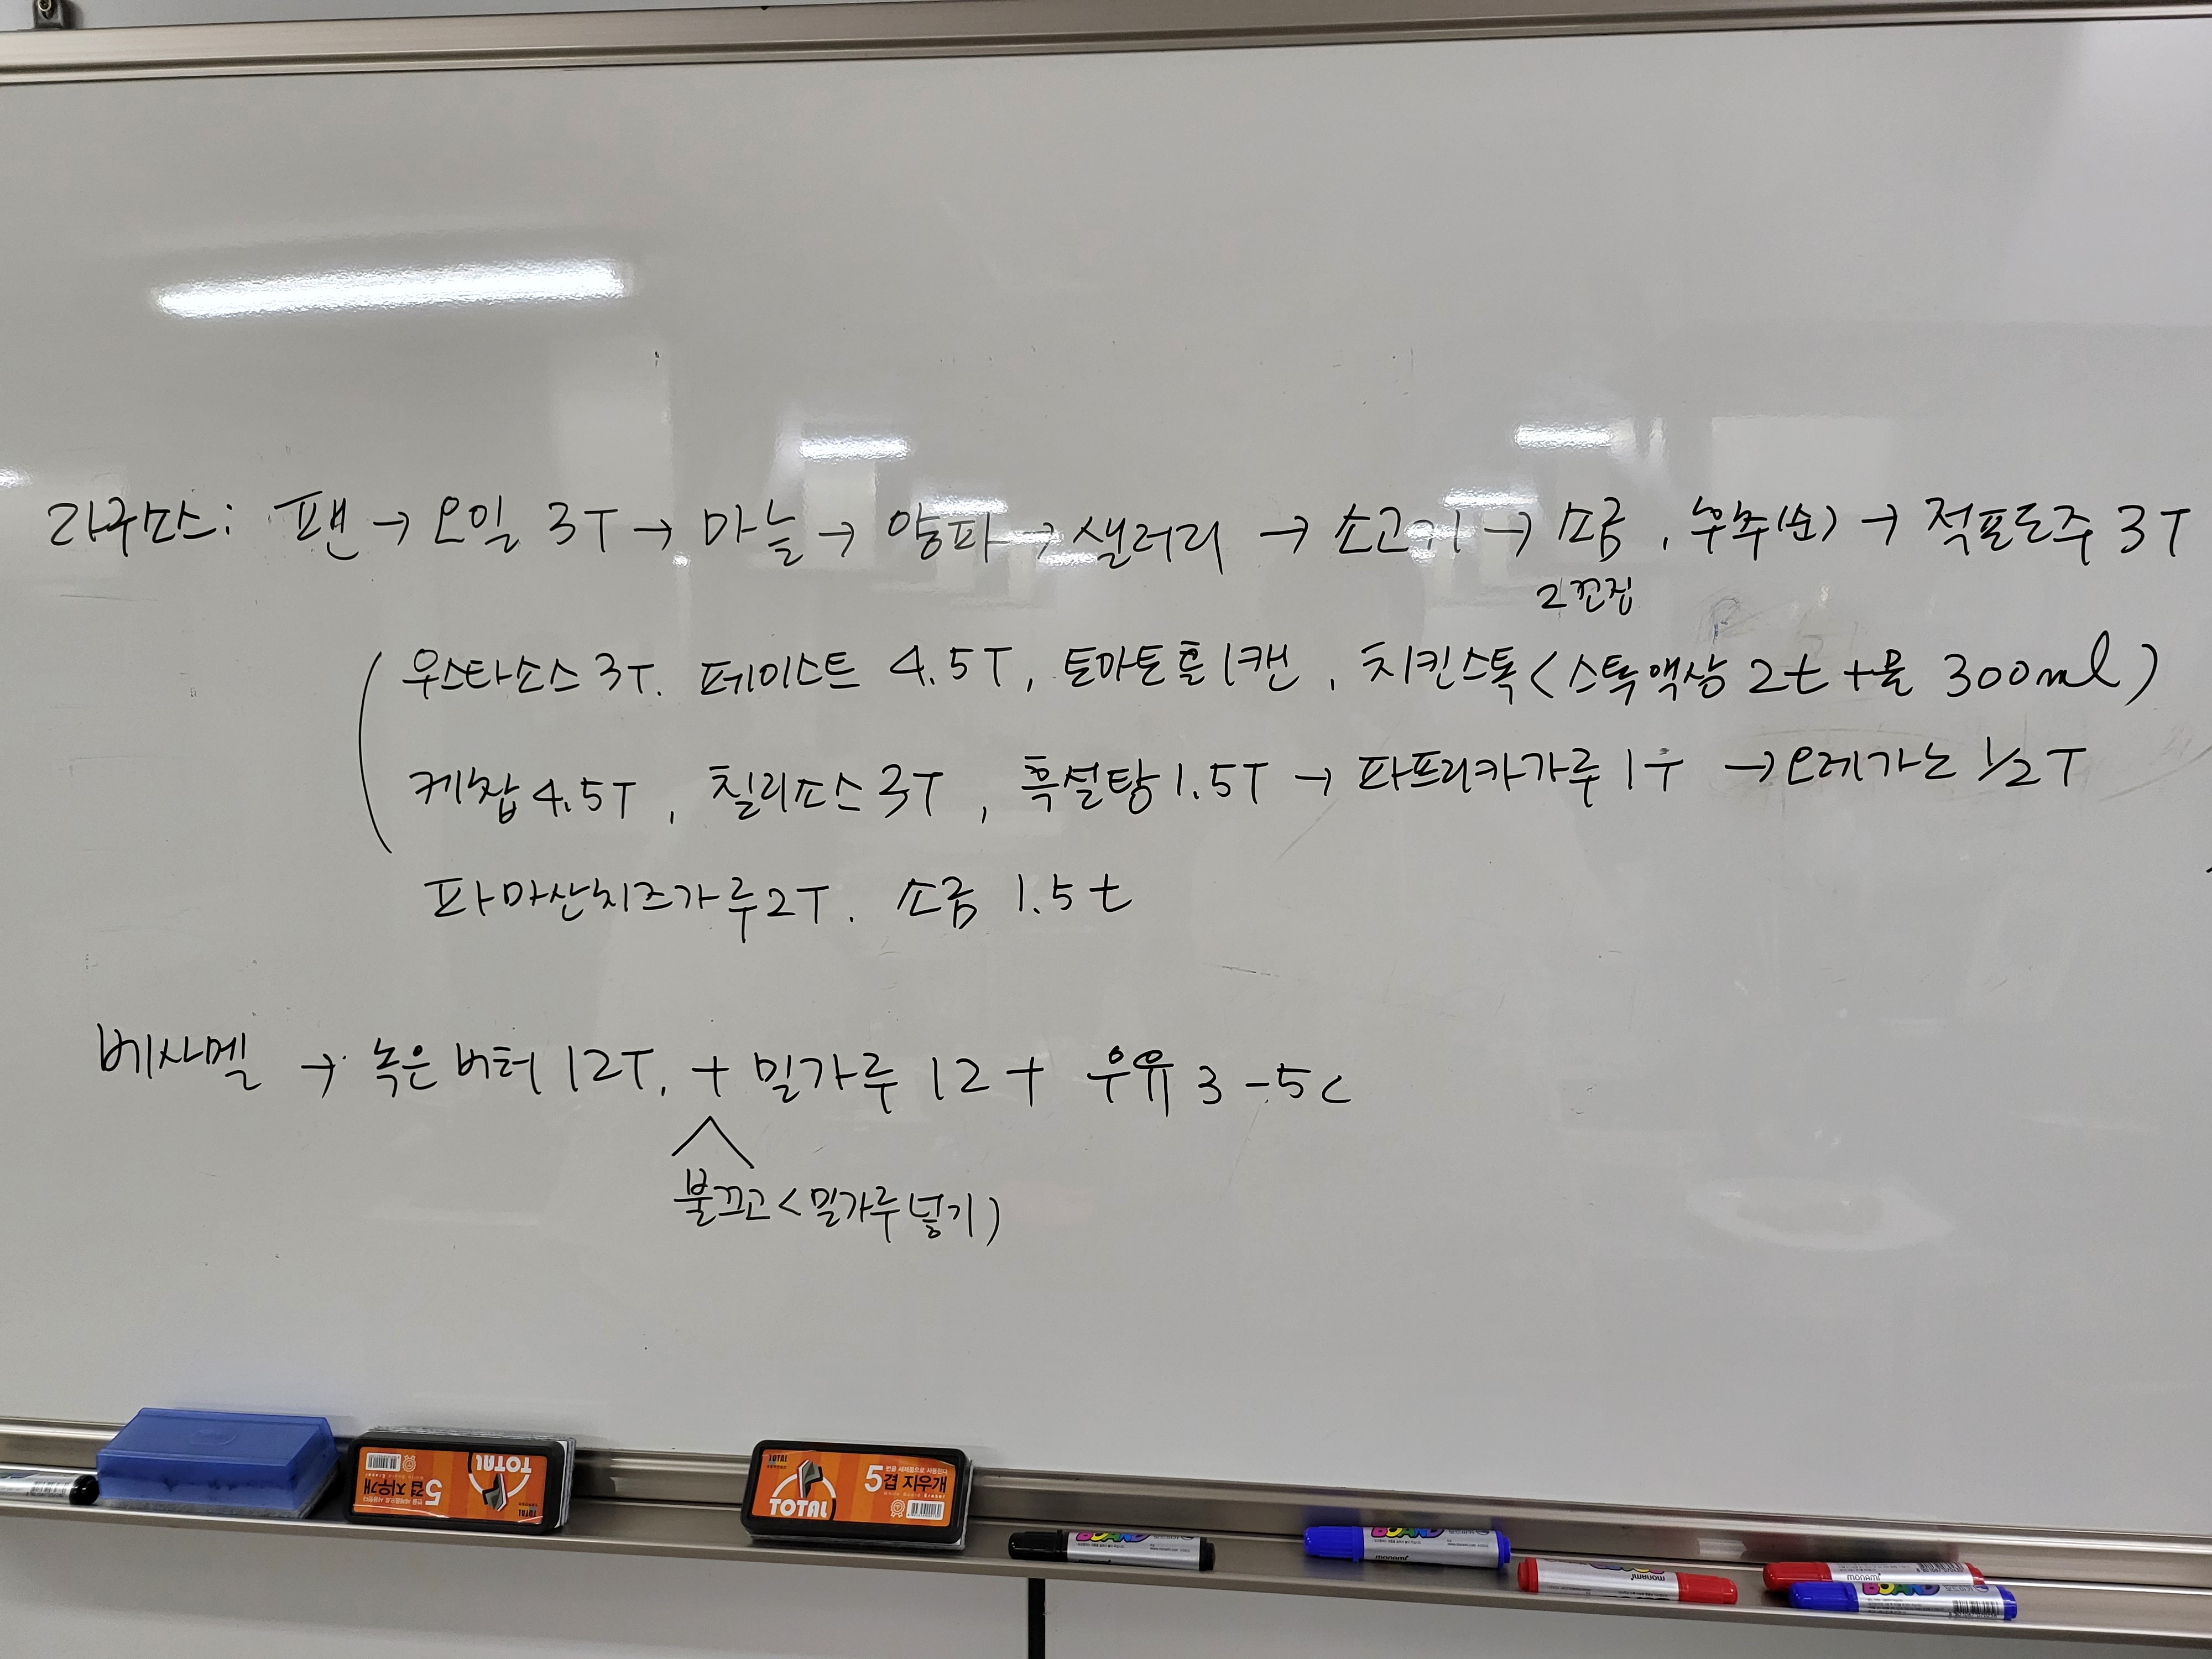 라구소스: 팬 → 오일 3T → 마늘 → 양파 → 샐러리 → 소고기 → 소금, 후추(순) → 적포도주 3T
2꼬집
우스타소스 3T. 페이스트 4.5T, 토마토홀 1캔, 치킨스톡 (스톡액상 2t + 물 300ml)
케찹 4.5T, 칠리소스 3T, 흑설탕 1.5T → 파프리카가루 1T → 오레가노 1/2T
파마산치즈가루 2T. 소금 1.5t
베샤멜 → 녹은버터 12T. + 밀가루 12 + 우유 3-5c
불끄고 (밀가루넣기)
TOTAL
5겹 지우개
TOTAL
5겹 지우개
BOARD
BOARD
monami
monami
monami
BOARD